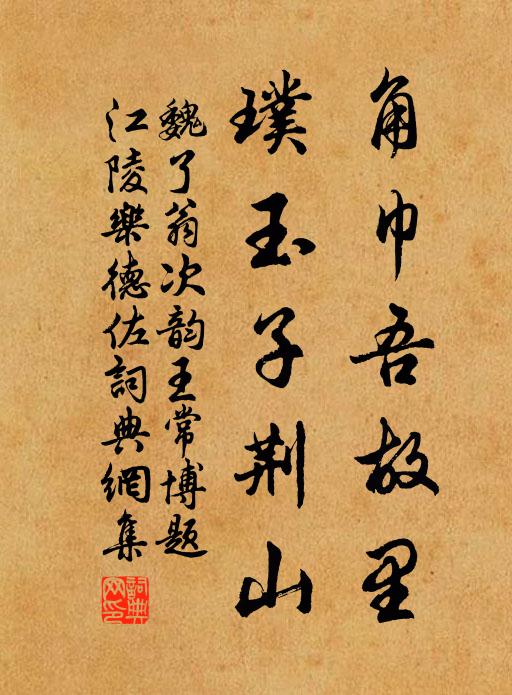 角巾吾故里
璞玉子荆山
魏了翁次韵王常博题
江陵樂德佐詞典網集
詞典網印